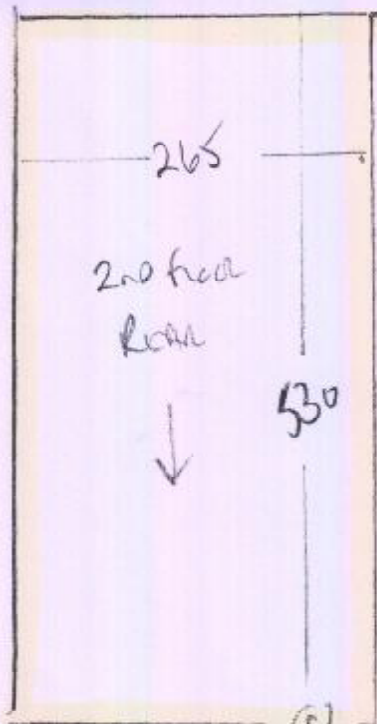 265
2nd floor
Rear
530